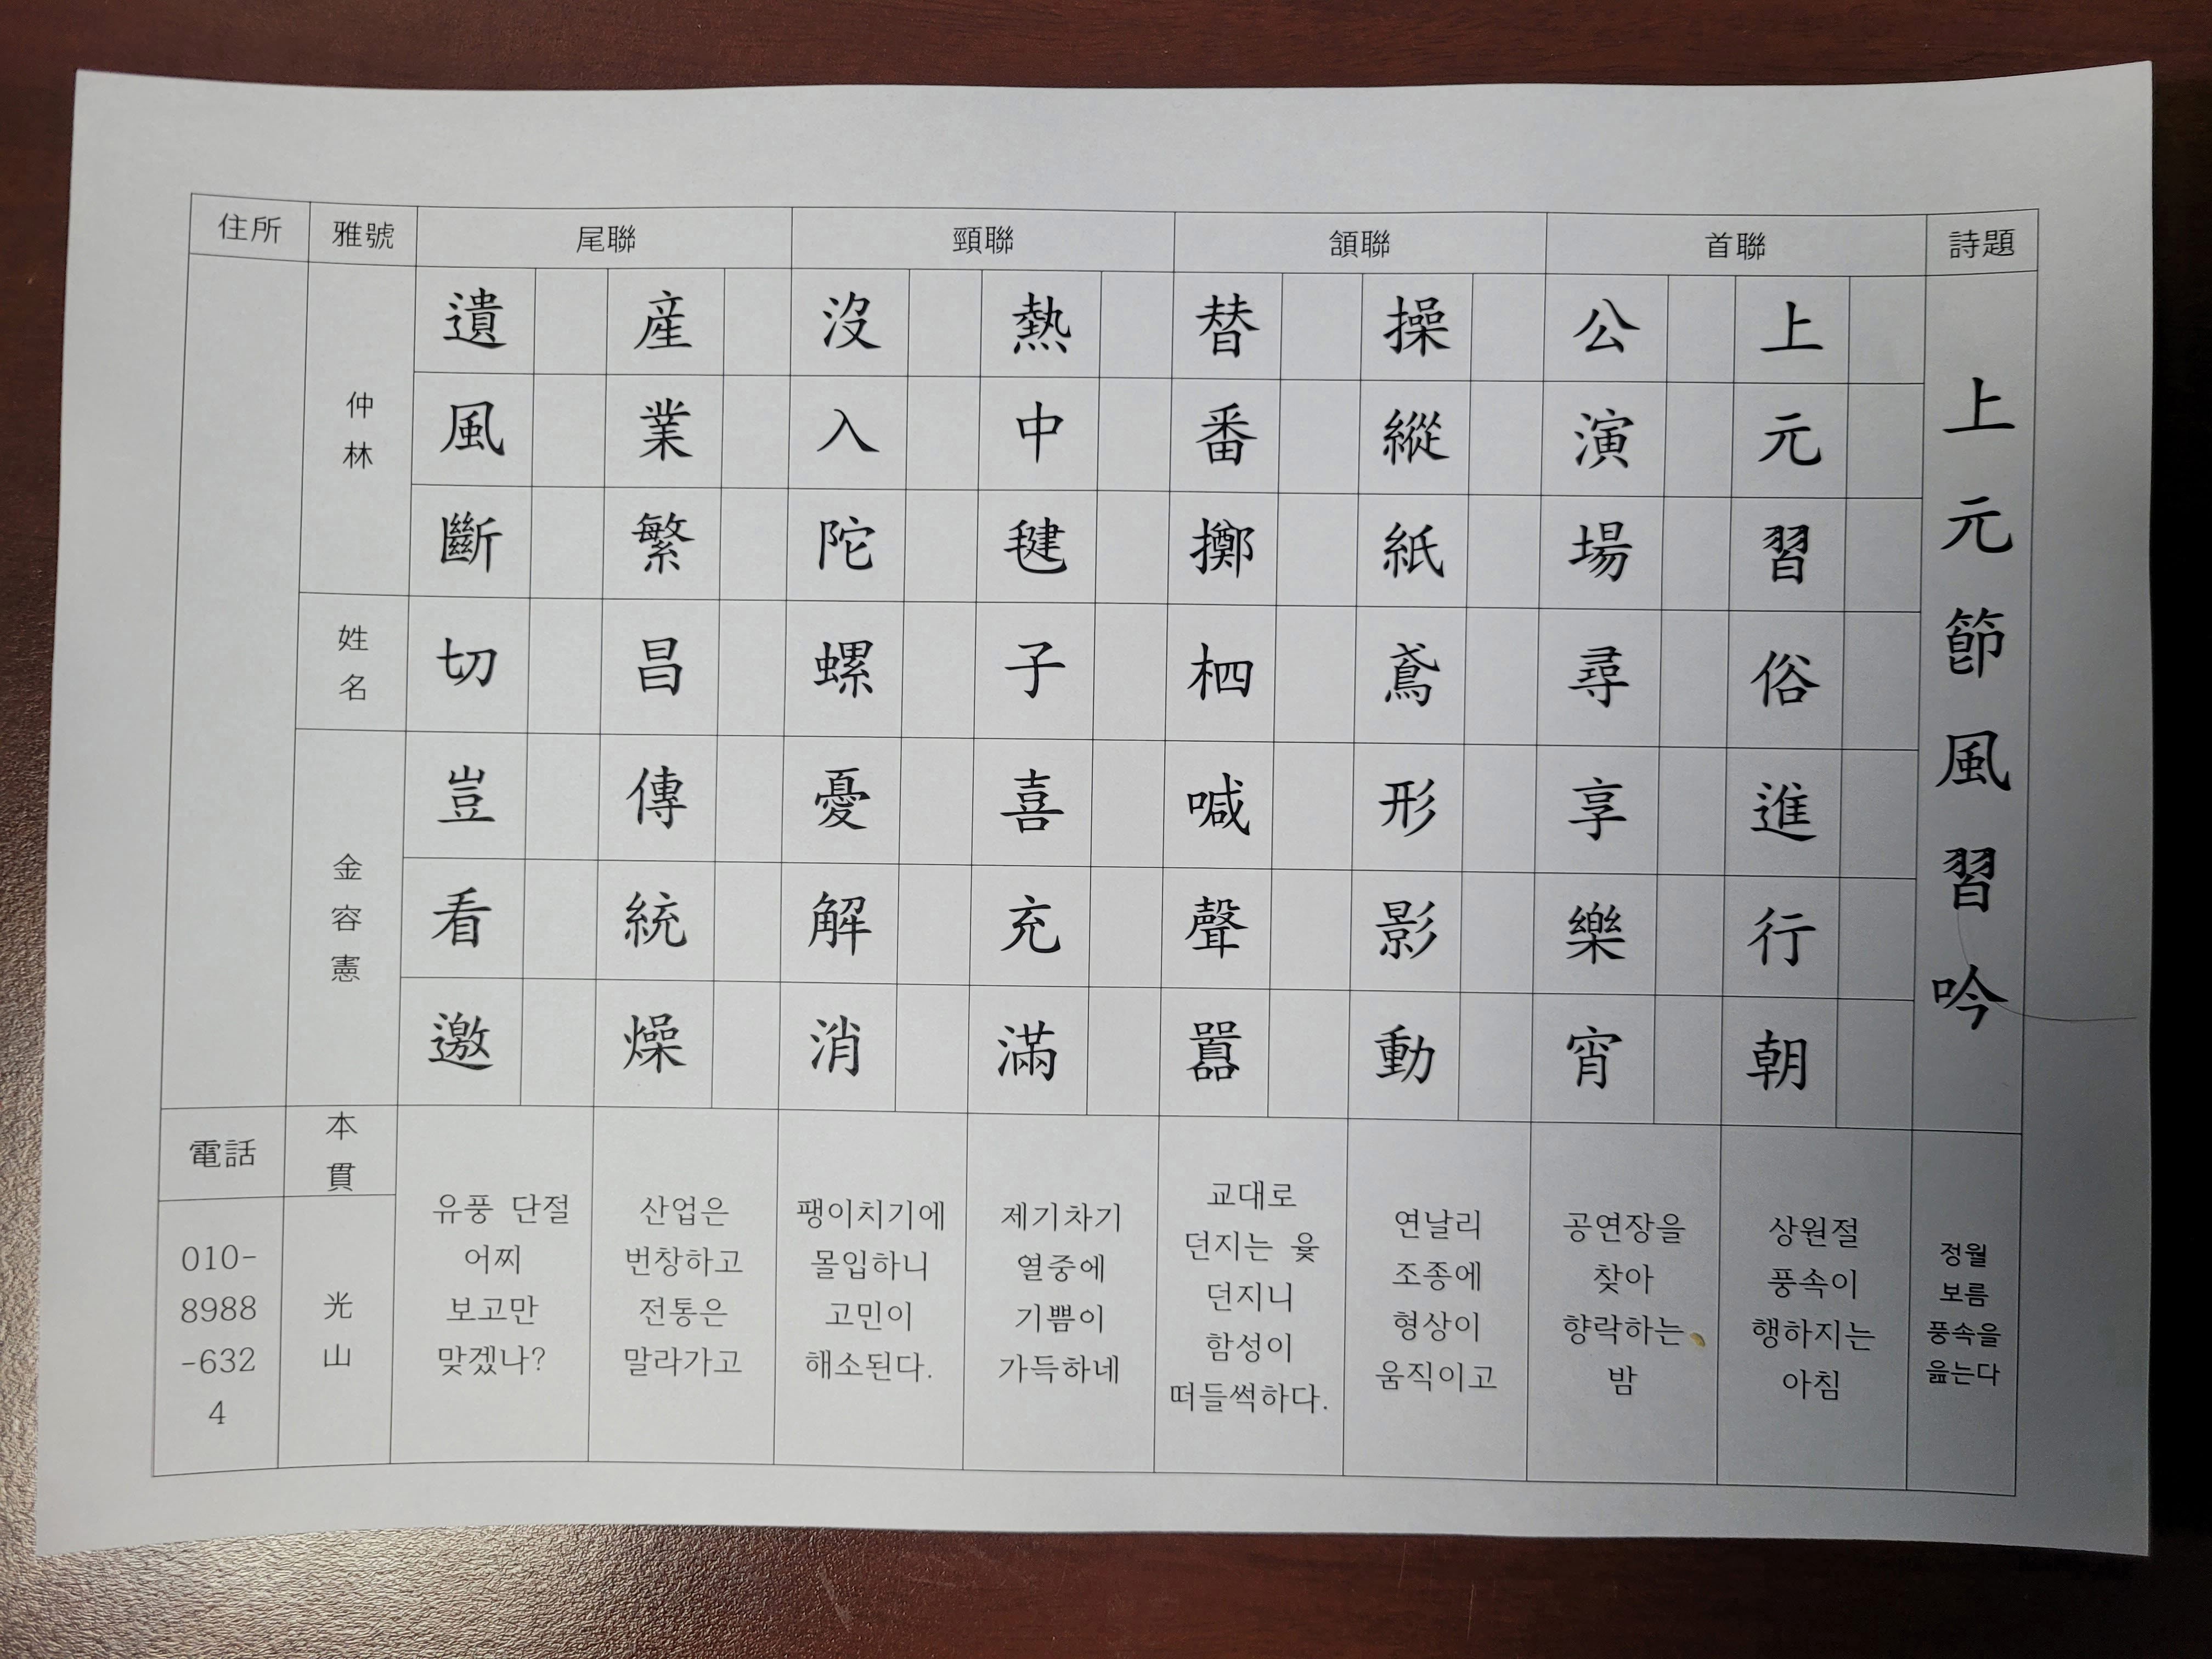 詩題
上元節風習吟
정월
보름
풍속을
읊는다
首聯
上元習俗進行朝
상원절
풍속이
행하지는
아침
公演場尋享樂宵
공연장을
찾아
향락하는
밤
頷聯
操縱紙鳶形影動
연날리
조종에
형상이
움직이고
替番擲柶喊聲囂
교대로
던지는 윷
던지니
함성이
떠들썩하다.
頸聯
熱中毽子喜充滿
제기차기
열중에
기쁨이
가득하네
沒入陀螺憂解消
팽이치기에
몰입하니
고민이
해소된다.
尾聯
産業繁昌傳統燥
산업은
번창하고
전통은
말라가고
遺風斷切豈看邀
유풍 단절
어찌
보고만
맞겠나?
雅號
仲林
姓名
金容憲
本貫
光山
住所
電話
010-
8988
-632
4